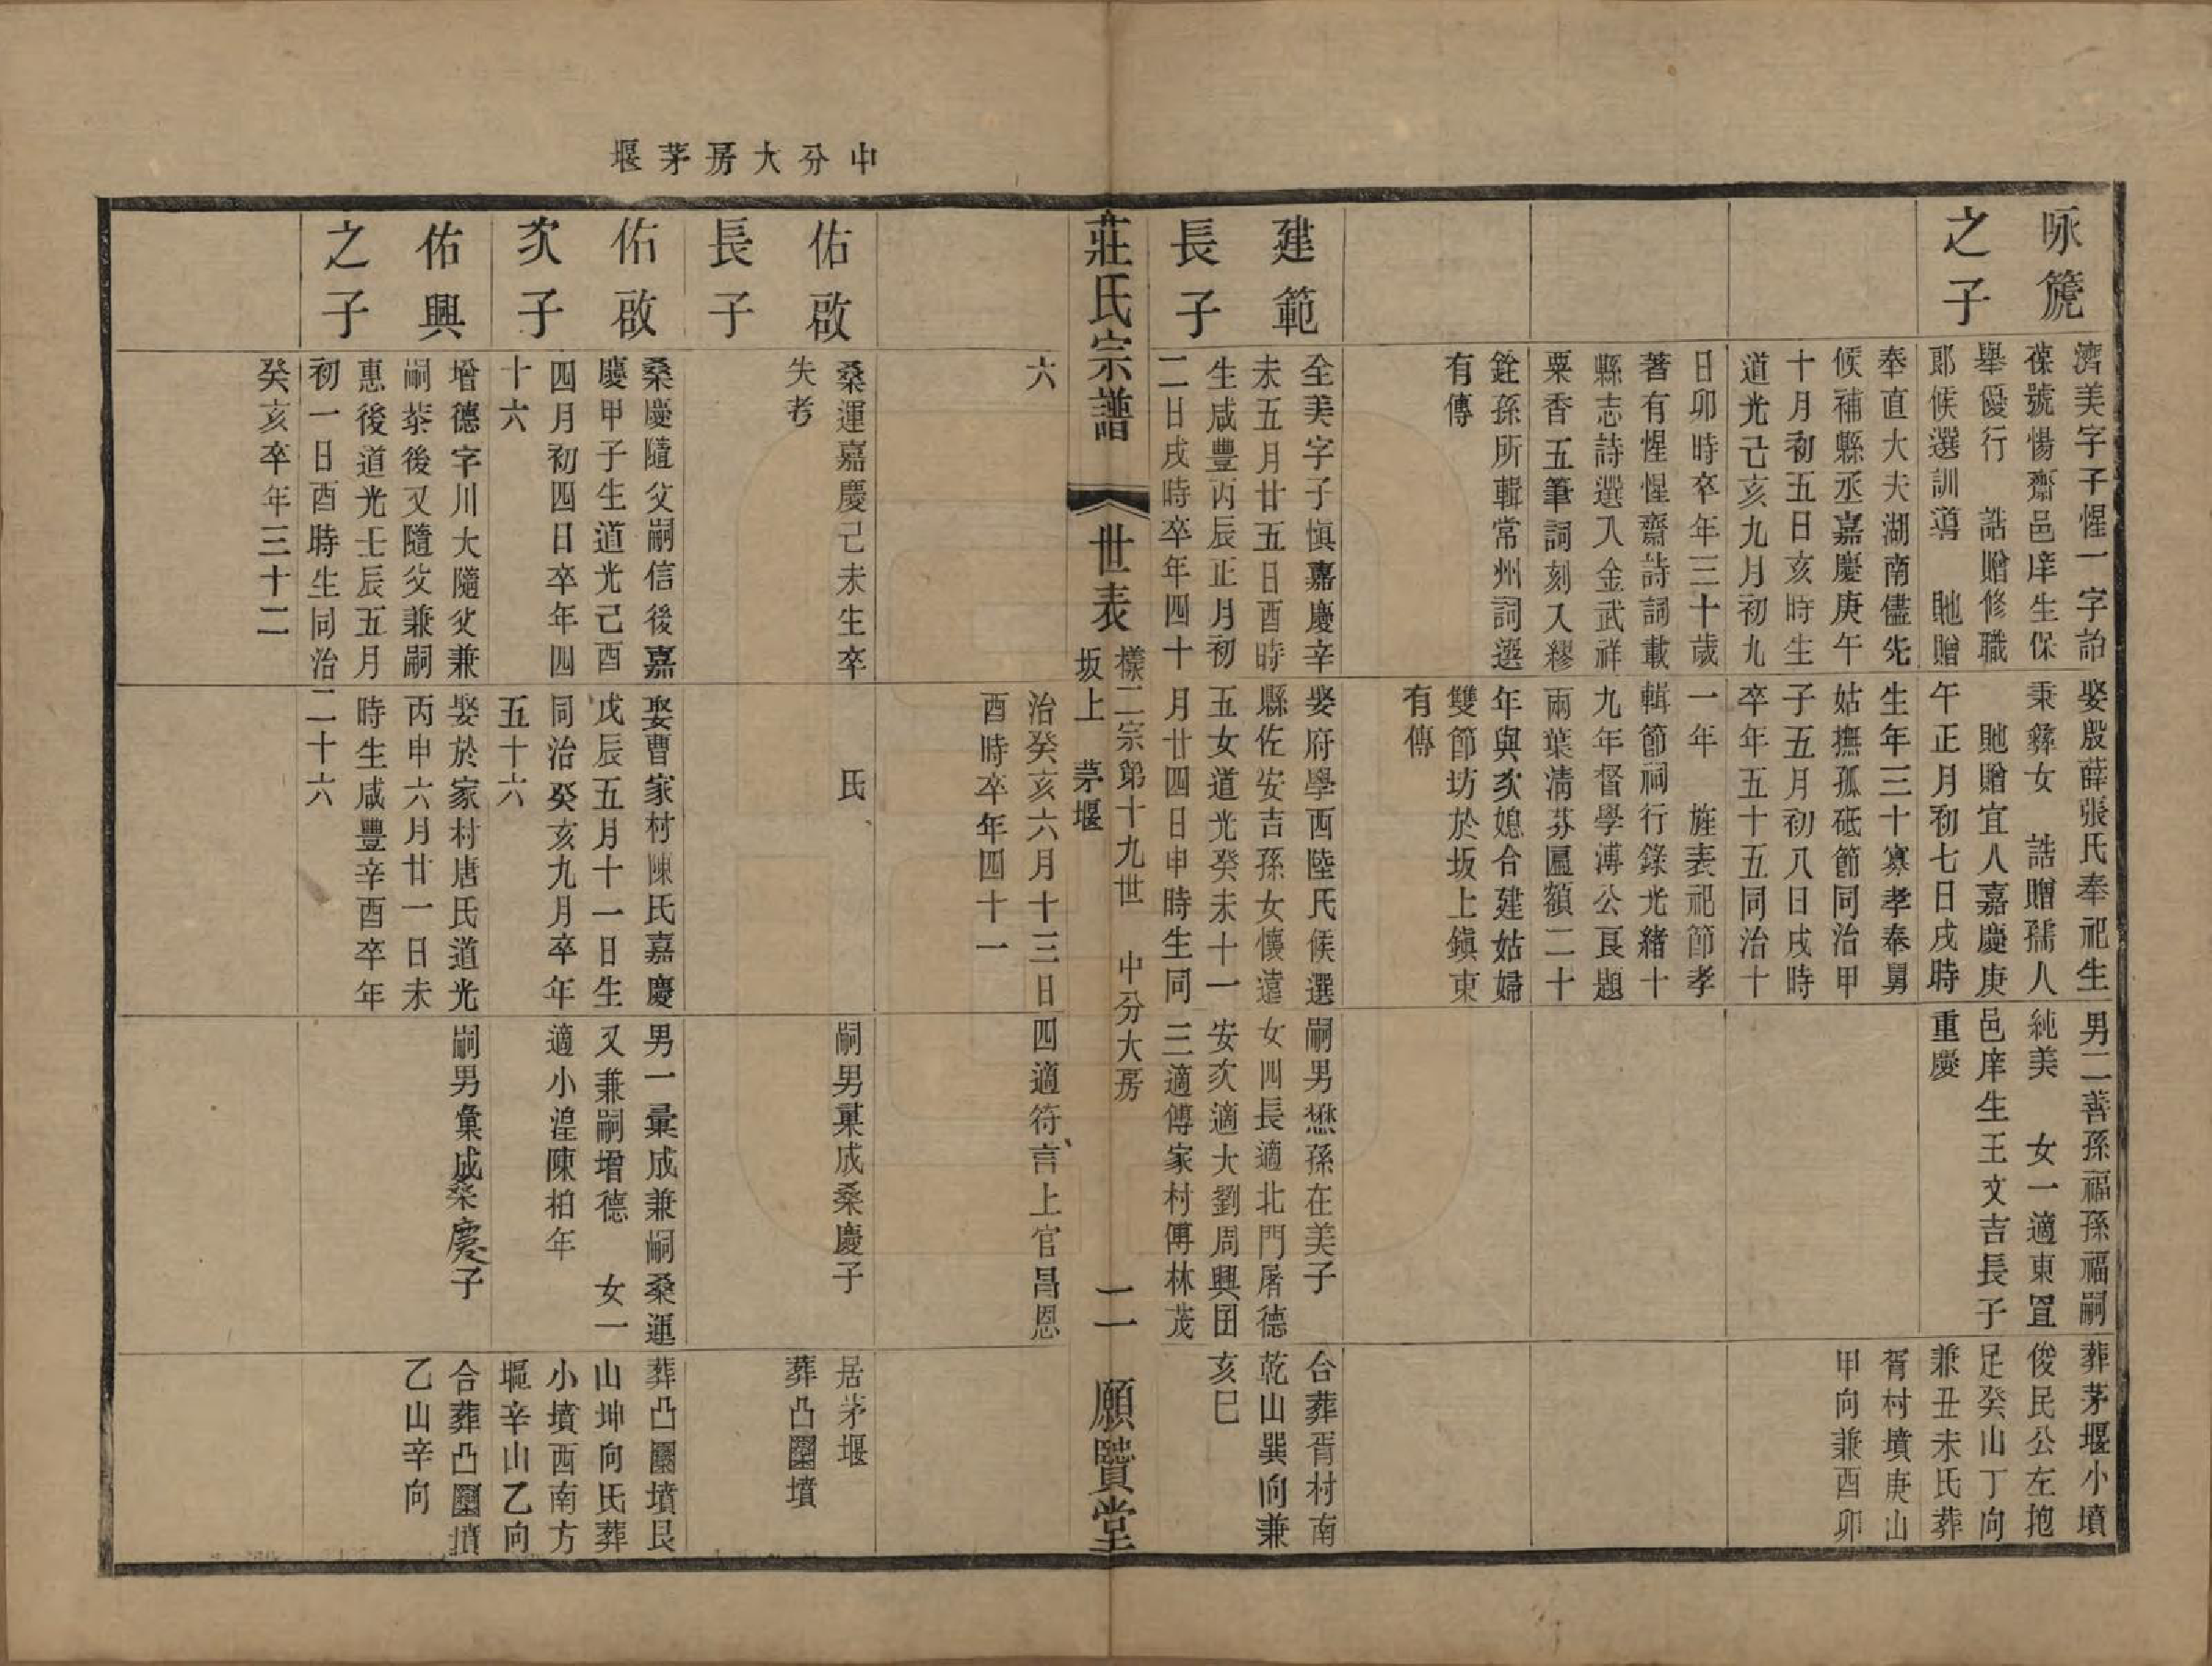 中分大房茅堰
咏篪
之子
濟美字子惺一字詒
葆號惕齋邑庠生保
舉優行　誥贈修職
郎候選訓導　貤贈
奉直大夫湖南儘先
候補縣丞嘉慶庚午
十月初五日亥時生
道光己亥九月初九
日卯時卒年三十歲
著有惺惺齋詩詞載
縣志詩選入金武祥
粟香五筆詞刻入繆
銓孫所輯常州詞選
有傳
娶殷薛張氏奉祀生
秉彝女　誥贈孺人
　貤贈宜人嘉慶庚
午正月初七日戌時
生年三十寡孝奉舅
姑撫孤砥節同治甲
子五月初八日戌時
卒年五十五同治十
一年　旌表祀節孝
輯節祠行錄光緒十
九年督學溥公良題
兩葉清芬匾額二十
年與次媳合建姑婦
雙節坊於坂上鎭東
有傳
男二善孫福孫福嗣
純美　女一適東罝
邑庠生王文吉長子
重慶
葬茅堰小墳
俊民公左抱
足癸山丁向
兼丑未氏葬
胥村墳庚山
甲向兼酉卯
建範
長子
全美字子愼嘉慶辛
未五月廿五日酉時
生咸豐丙辰正月初
二日戌時卒年四十
六
娶府學西陸氏候選
縣佐安吉孫女懷遠
五女道光癸未十一
月廿四日申時生同
治癸亥六月十三日
酉時卒年四十一
嗣男懋孫在美子
女四長適北門屠德
安次適大劉周興囝
三適傅家村傅林茂
四適符言上官昌恩
合葬胥村南
乾山巽向兼
亥巳
莊氏宗譜
世表
樣二宗第十九世　中分大房
坂上　茅堰
二
願賢堂
佑啟
長子
桑運嘉慶己未生卒
失考
氏
嗣男菓成桑慶子
居茅堰
葬凸墳
佑啟
次子
桑慶隨父嗣信後嘉
慶甲子生道光己酉
四月初四日卒年四
十六
娶曹家村陳氏嘉慶
戊辰五月十一日生
同治癸亥九月卒年
五十六
男一彙成兼嗣桑運
又兼嗣增德　女一
適小湟陳柏年
葬凸墳艮
山坤向氏葬
小墳西南方
堰辛山乙向
佑興
之子
增德字川大隨父兼
嗣桼後又隨父兼嗣
惠後道光壬辰五月
初一日酉時生同治
癸亥卒年三十二
娶於家村唐氏道光
丙申六月廿一日未
時生咸豐辛酉卒年
二十六
嗣男彙成桑慶子
合葬凸墳
乙山辛向